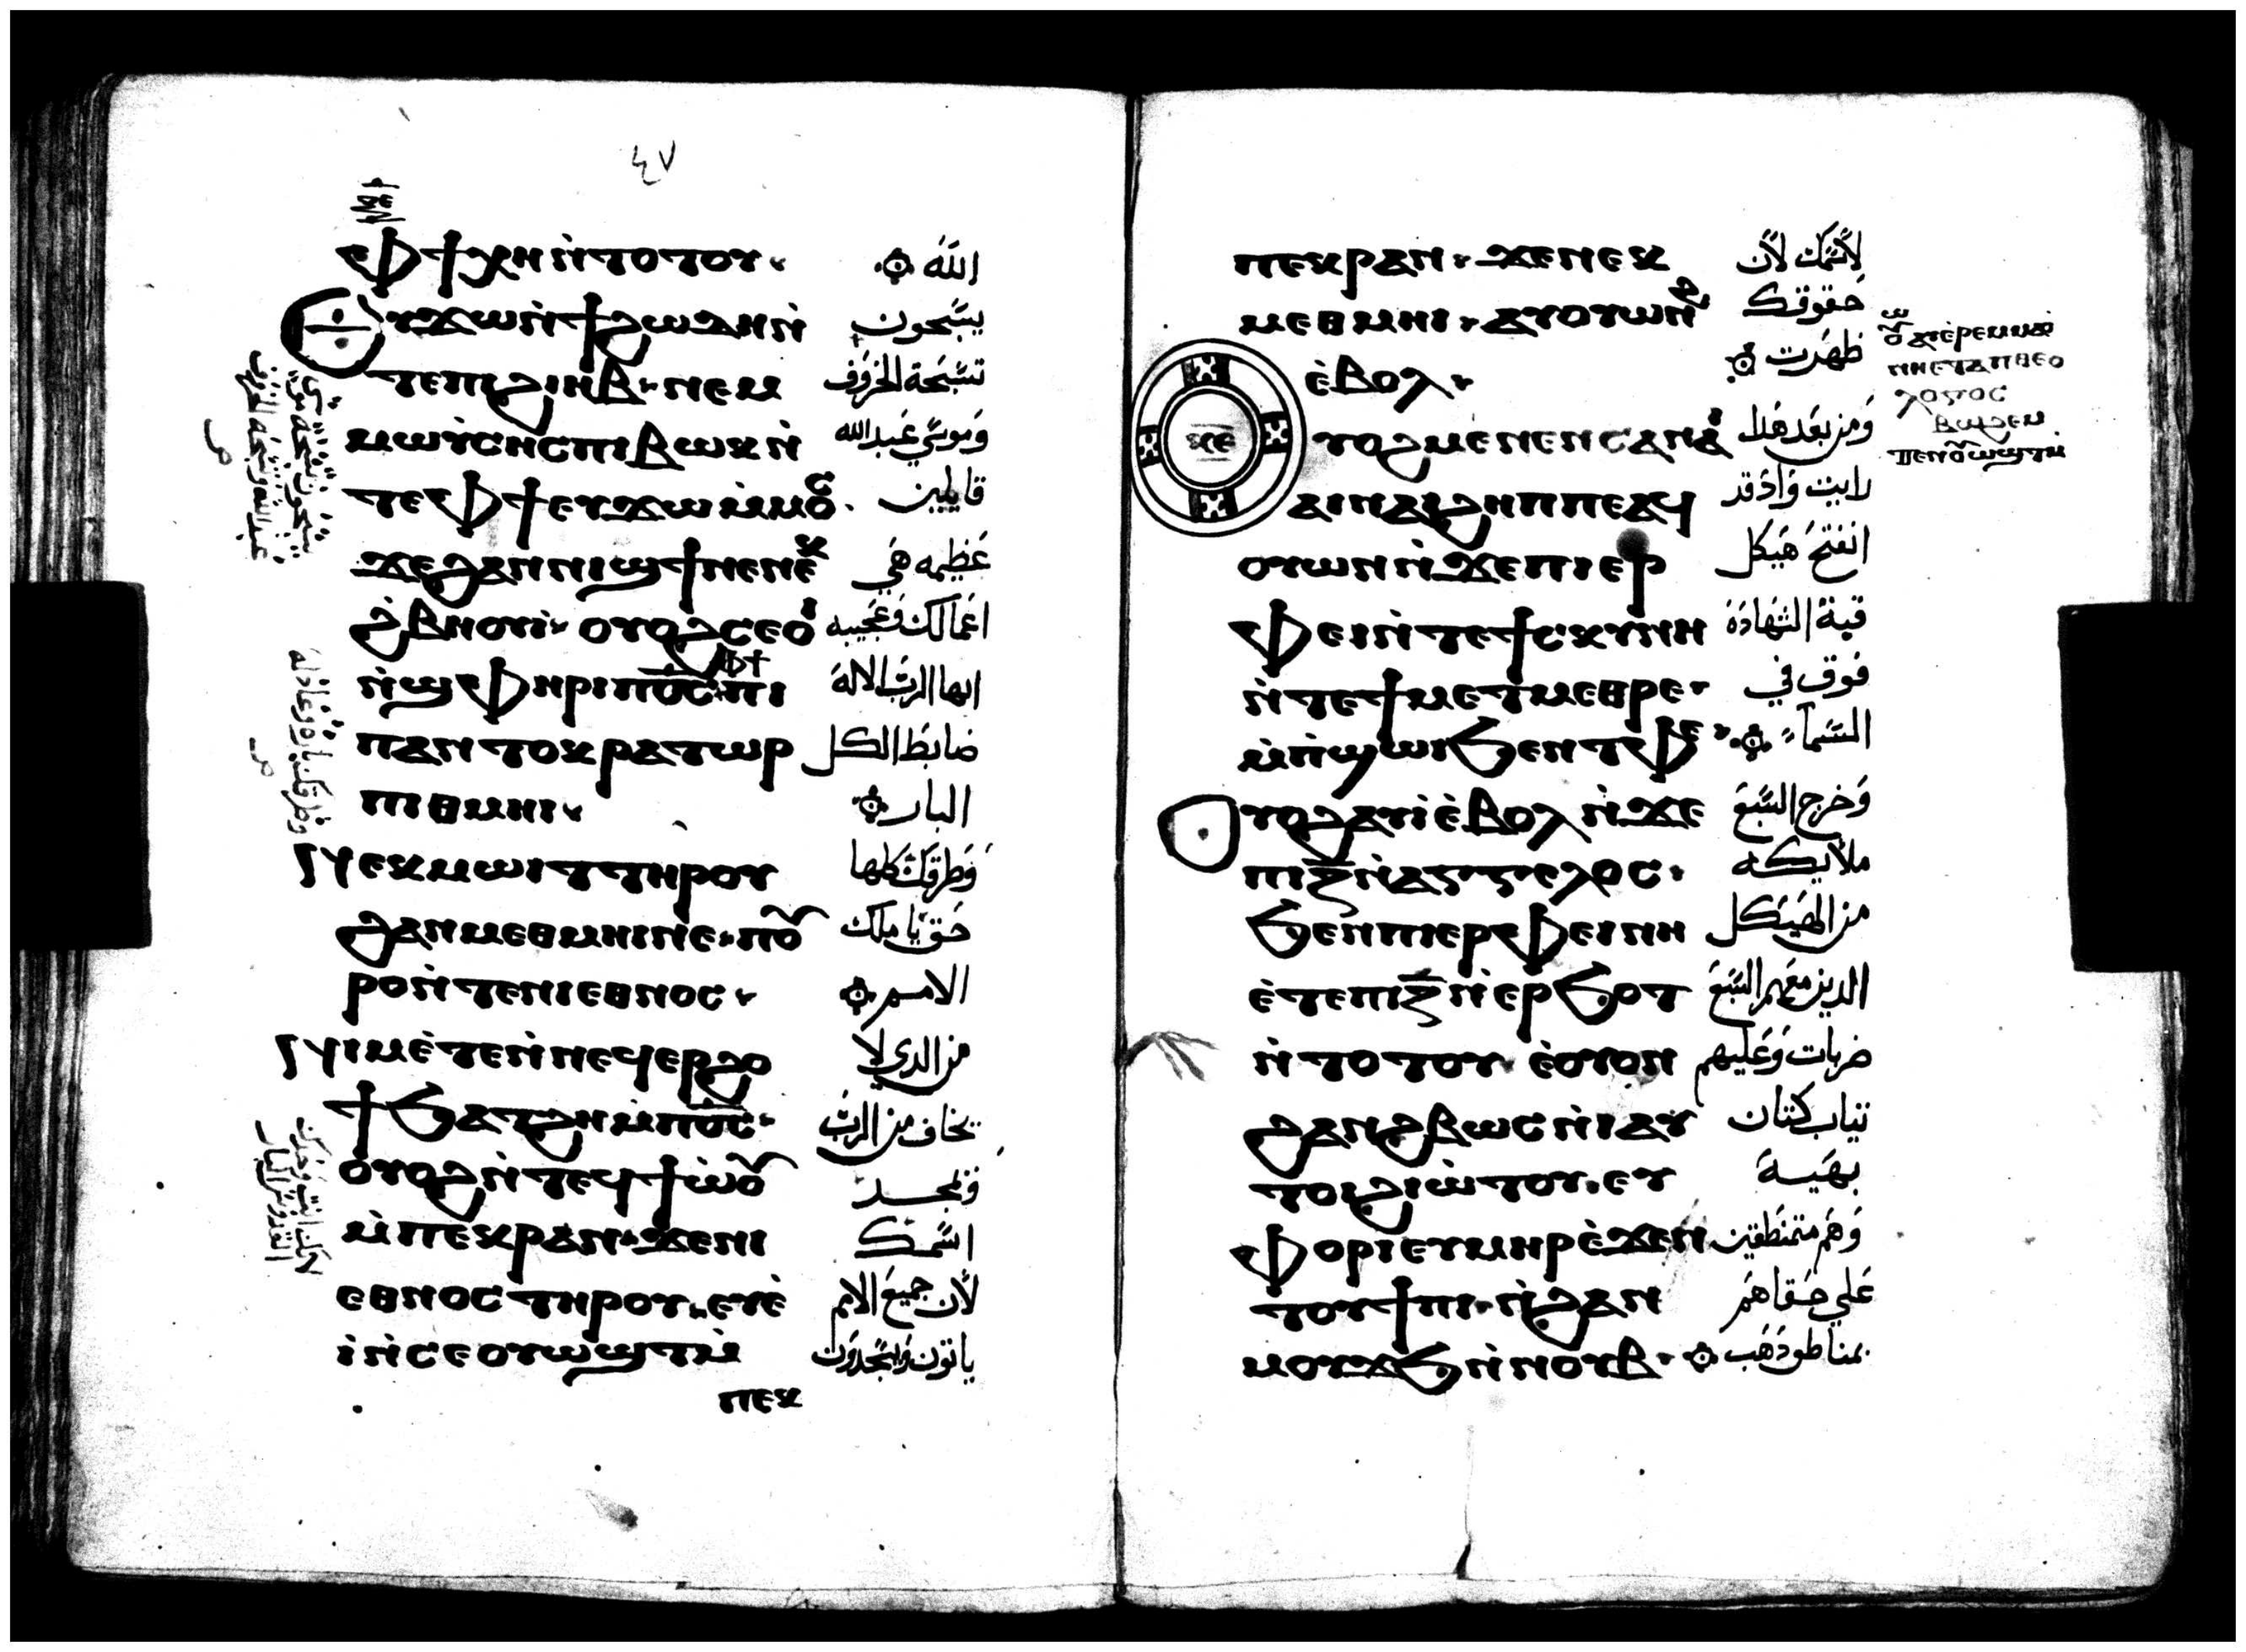 ٤٧
ⲪϮ ⲭⲏ ⲛ̀ⲧⲟⲧⲟⲩ·
الله
ⲟⲩϫⲱ ⲛ̀ϯϩⲱⲇⲏ ⲛ̀
يسبحون
ⲧⲉ ⲡⲓϩⲓⲏⲃ· ⲛⲉⲙ
تسبحة الخروف
ⲙⲱⲩⲥⲏⲥ ⲡⲓⲃⲱⲕ ⲛ̀
وموسي عبد الله
ⲧⲉ Ⲫϯ ⲉⲩϫⲱ ⲙ̀ⲙⲟⲥ·
قايلين
ϫⲉ ϩⲁⲛⲛⲓϣϯ ⲛⲉ ⲛⲉⲕ
عظيمه هي
ϩ̀ⲃⲏⲟⲩⲓ̀· ⲟⲩⲟϩ ⲥⲉⲟⲓ
اعمالك وعجيبه
ⲛ̀ϣⲫⲏⲣⲓ ⲡⲟ̅ⲥ̅ ⲫϯ ⲡⲓ
ايها الرب الاله
ⲡⲁⲛⲧⲟⲕⲣⲁⲧⲱⲣ
ضابط الكل
ⲡⲓⲑⲙⲏⲓ·
البار
ⲛⲉⲕⲙⲱⲓⲧ ⲧⲏⲣⲟⲩ
وطرقك كلها
ϩⲁⲛⲙⲉⲑⲙⲏⲓ ⲛⲉ· ⲡⲟⲩ
حق يا ملك
ⲣⲟ ⲛ̀ⲧⲉ ⲛⲓⲉⲑⲛⲟⲥ·
الامم
ⲛⲓⲙ ⲉ̀ⲧⲉ ⲛ̀ⲛⲉϥⲉⲣϩⲟ
من الدي لا
ϯ ϧⲁⲧϩⲏ ⲙ̀ⲡⲟ̅ⲥ̅·
يخاف من الرب
ⲟⲩⲟϩ ⲛ̀ⲧⲉϥϯⲱ̀ⲟⲩ
ويمجد
ⲙ̀ⲡⲉⲕⲣⲁⲛ· ϫⲉ ⲛⲓ
اسمك
ⲉⲑⲛⲟⲥ ⲧⲏⲣⲟⲩ· ⲉⲩⲉ̀
لان جميع الامم
ⲓ̀ ⲛ̀ⲥⲉⲟⲩⲱϣⲧ ⲙ̀
ياتون ويسجدون
ⲡⲉⲕ
ⲡⲉⲕⲣⲁⲛ· ϫⲉ ⲛⲉⲕ
لاسمك لان
ⲙⲉⲑⲙⲏⲓ· ⲁⲩⲟⲩⲱⲛϩ
حقوقك
ⲉ̀ⲃⲟⲗ·
ظهرت
ⲟⲩⲟϩ ⲙⲉⲛⲉⲛⲥⲁ ⲛⲁⲓ
ومن بعد هدا
ⲁⲓⲛⲁⲩ ϩⲏⲡⲡⲉ ⲁϥ
رايت واد قد
ⲟⲩⲱⲛ ⲛ̀ϫⲉ ⲡⲓⲉⲣ
انفتح هيكل
ⲫⲉⲓ ⲛ̀ⲧⲉ ϯⲥⲕⲩⲛⲏ
قبة الشهادة
ⲛ̀ⲧⲉ ϯⲙⲉⲧⲙⲉⲑⲣⲉ·
فوق في
ⲙ̀ⲡ̀ϣⲱⲓ ϧⲉⲛ ⲧⲫⲉ·
السماء
ⲟⲩⲟϩ ⲁⲩⲓ̀ ⲉ̀ⲃⲟⲗ ⲛ̀ϫⲉ
وخرج السبع
ⲡⲓⲍ̅ ⲛ̀ⲁⲅⲅⲉⲗⲟⲥ·
ملايكه
ϧⲉⲛ ⲡⲓⲉⲣⲫⲉⲓ ⲛⲏ
من الهيكل
ⲉ̀ⲧⲉ ⲡⲓⲍ̅ ⲛ̀ⲉⲣϧⲟⲧ
الدين معهم السبع
ⲛ̀ⲧⲟⲧⲟⲩ ⲉ̀ⲟⲩⲟⲛ
ضربات وعليهم
ϩⲁⲛϩⲃⲱⲥ ⲛ̀ⲓⲁⲩ
تياب كتان
ⲧⲟⲓ ϩⲓⲱ̀ⲧⲟⲩ· ⲉⲩ
بهيه
ⲫⲟⲣⲓ ⲉⲩⲙⲏⲣ ⲉ̀ϫⲉⲛ
وهم متمنطقين
ⲧⲟⲩϯⲡⲓ· ⲛ̀ϩⲁⲛ
علي حقاهم
ⲙⲟⲩϫϧ ⲛ̀ⲛⲟⲩⲃ·
بمناطق دهب